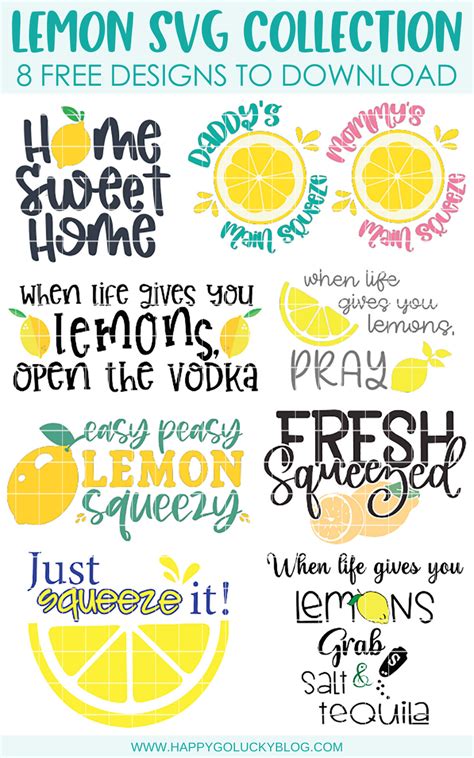 LEMON SVG COLLECTION
8 FREE DESIGNS TO DOWNLOAD
Home
Sweet
Home
Daddy's
Main Squeeze
Mommy's
Main Squeeze
when life gives you
lemons,
open the vodka
when life
gives you
lemons,
PRAY
easy peasy
LEMON
squeezy
FRESH
Squeezed
Just
squeeze it!
When life gives you
LEMONS
Grab
SALT &
tequila
WWW.HAPPYGOLUCKYBLOG.COM